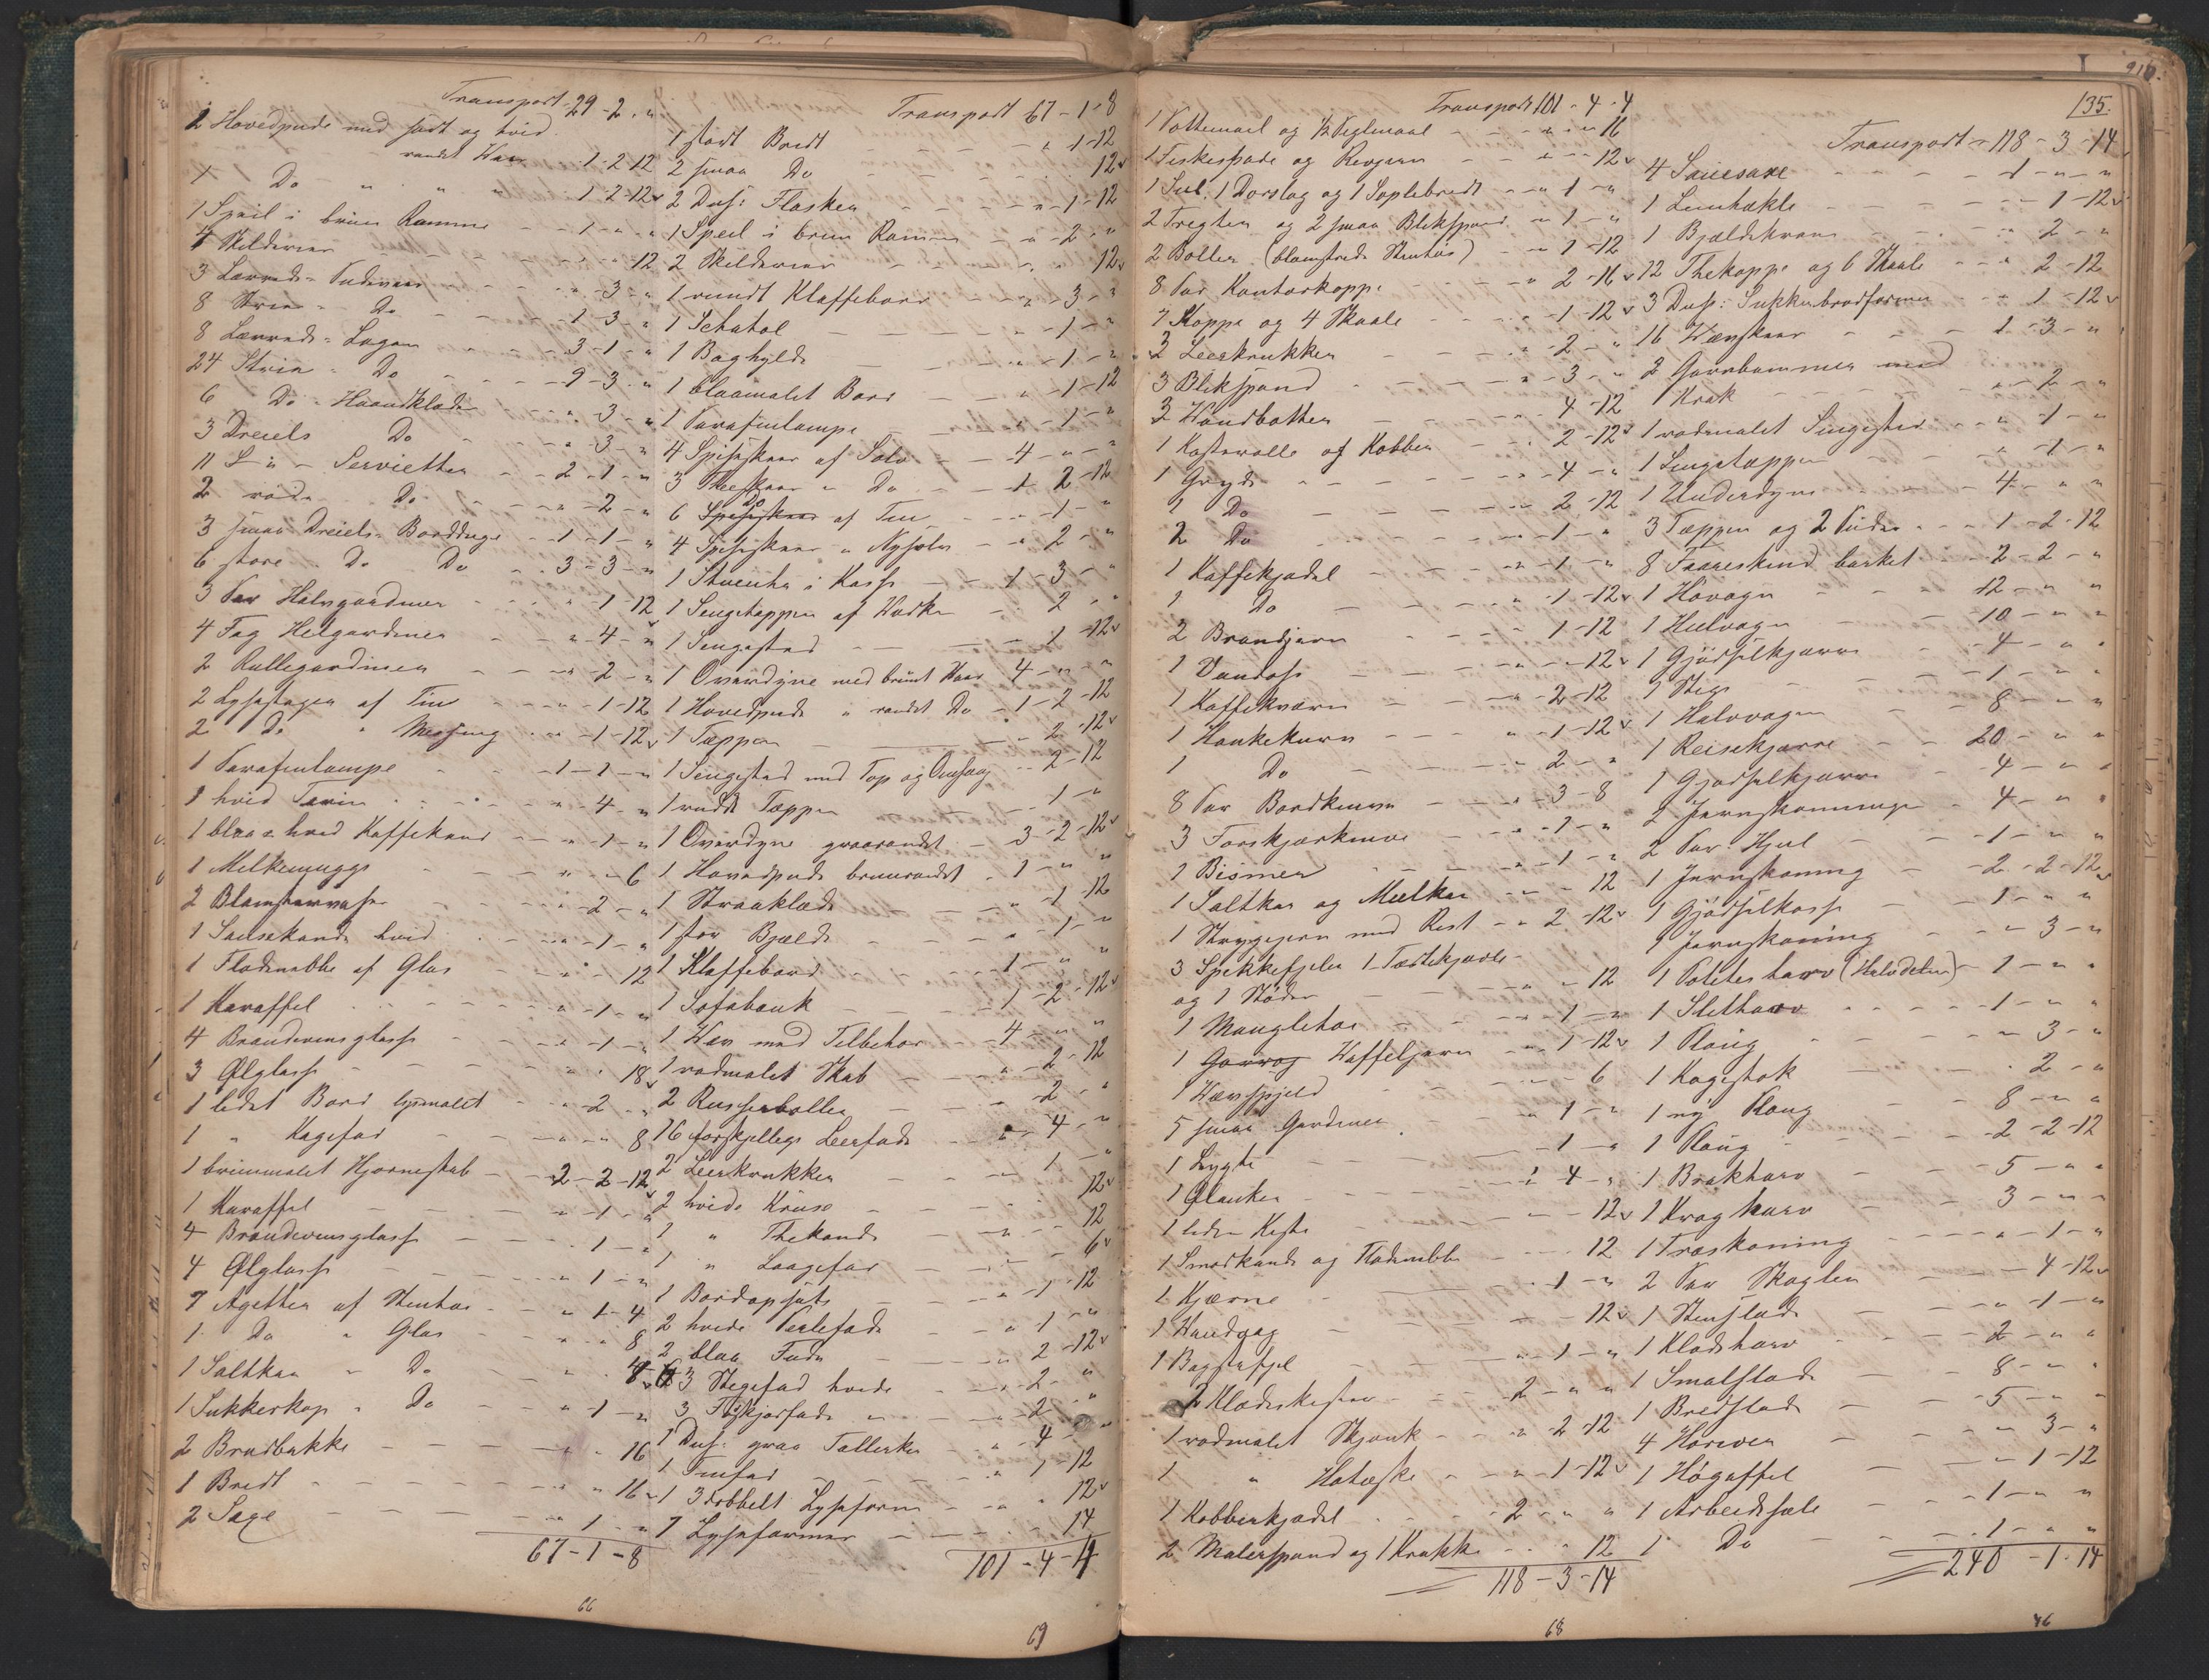 Transport 29 - 2 - "
2 Hovedpude med sort og hvid
randet Waar 1 - 2 - 12
1 Do " " " 1 - 2 - 12
1 Speil i bruun Ramme - 1 - "
4 Skilderier 12
3 Lærreds- Pudevaar 3 - "
8 Strie - Do 1 - 3 - "
8 Lærreds- Lagen 3 - 1 - "
24 Strie - Do 9 - 3 - "
6 Do - Haandklæder 3 - "
3 Dreiels Do 3 - "
11 Servietter 2 - 1 - "
2 røde Do 2 - "
3 smaa Dreiels- Bordduge 1 - 1 - "
6 store Do Do 3 - 3 - "
3 Par Halvgardiner 1 - 12
4 Fag Helgardiner 4 - "
2 Rullegardiner 2 - "
2 Lysestager af Tin 1 - 12
2 Do " Messing 1 - 12
1 Parafinlampe 1 - 1 - "
1 hvid Terrin 4 - "
1 blaa & hvid Kaffekande 1 - "
1 Melkemugge 6
2 Blomstervaser 2 - "
1 Sausekande hvid 1 - "
1 Flødenebbe af Glas 12
1 Karaffel 1 - "
4 Brændevinsglasse 1 - "
3 Ølglasse 18
1 lidet Bord lysmalet 2 - "
1 " Kagefad 8
1 brunmalet Hjørneskab 2 - 2 - 12
1 Karaffel 1 - "
4 Brændevinsglasse 1 - "
4 Ølglasse 1 - "
7 Asietter af Stentøi 1 - 4
1 Do " Glas 8
1 Saltkar " Do 8
1 Sukkerkop " Do 1 - "
2 Brødbakke 16
1 Bredt 16
2 Sage 1 - "
67 - 1 - 8
66
Transport 67 - 1 - 8
1 stort Bredt 1 - 12
2 smaa Do 12
2 Dus: Flasker 1 - 12
1 Speil i bruun Ramme 2 - "
2 Skilderier 12
1 rundt Klaffebord 3 - "
1 Schatol 1 - "
1 Boghylde 1 - "
1 blaamalet Bord 1 - 12
1 Parafinlampe 1 - "
4 Spiseskeer af Sølv 4 - " - "
3 Theskeer " Do 1 - 2 - 12
6 Do af Tin 1 - "
4 Spiseskeer " Nysølv 2 - "
1 Stueuhr i Kasse 1 - 3 - "
1 Sengetæppe af Vadke 2 - "
1 Sengested 1 - 12
1 Overdyne med bruunt Vaar 4 - " - "
1 Hovedpude " randet Do 1 - 2 - 12
1 Tæppe 2 - 12
1 Sengested med Top og Omhæng 2 - 12
1 rødt Tæppe 1 - "
1 Overdyne graarandet 3 - 2 - 12
1 Hovedpude bruunrandet 1 - " - "
1 Straaklæde 1 - 12
1 stor Bjælde 1 - "
1 Klaffebord 1 - " - "
1 Sofabænk 1 - 2 - 12
1 Væv med Tilbehør 4 - " - "
1 rødmalet Skab 2 - 12
2 Russerboller 2 - "
16 forskjellige Leerfade 4 - "
2 Leerkrukker 1 - "
2 hvide Kruse 12
1 " Thekande 12
1 " Laagefad 6
1 Bordopsats 1 - 12
2 hvide Terlefade 1 - "
2 blaa Fade 2 - 12
3 Stegefad hvide 2 - "
3 2 - "
1 Dus: graa Tallerker 4 - "
1 Tinfad 1 - 12
1 3 dobbelt Lyseform 12
7 Lyseformer 14
101 - 4 - 4
69
Transport 101 - 4 - 4
1 Pottemaal og 1/2 Peglmaal 16
1 Fiskespade og Revjern 12
1 Sul 1 Dørslag og 1 Soplebredt 1 - "
2 Tregter og 2 smaa Blikspand 1 - "
2 Boller (blomstrede Stentøi) 1 - 12
8 Par Kontorkoppe 2 - 16
7 Koppe og 4 Skaale 1 - 12
2 Leerkrukker 2 - "
3 Blikspand 3 - "
3 Vandbøtter 4 - 12
1 Kasterolle af Kobber 2 - 12
1 Gryde 4 - "
1 Do 2 - 12
2 Do 1 - "
1 Kaffekjedel 1 - "
1 Do 1 - 12
2 Brandjern 1 - 12
1 Vandøse 12
1 Kaffekværn 2 - 12
1 Hankekurv 1 - 12
1 Do 2 - "
8 Par Bordknive 3 - 8
3 Forskjærknive 1 - "
1 Bismer 1 - "
1 Saltkar og Meelkar 12
1 Strygejern med Rist 2 - 12
3 Spekkefjeler 1 Tærtekjevle
og 1 Støder 12
1 Mangletøi 1 - "
1 Vaffeljern 1 - 12
1 Vævspjeld 6
5 smaa Gardiner 1 - "
1 Lygte 1 - "
1 Ølanker 4 - "
1 liden Kiste 12
1 Smørkande og Flødenebbe 12
1 Kjærne 1 - "
1 Vandsag 12
1 Bagstefjel 1 - "
2 Klædeskister 2 - " - "
1 rødmalet Skjænk 2 - 12
1 " Hatæske 1 - 12
1 Kobberkjedel 2 - " - "
2 Malerspand og 1 Krukke 12
118 - 3 - 14
68
135.
Transport 118 - 3 - 14
4 Sauesaxe 1 - " - "
1 Liinhækle 1 - 12
1 Bjældekrans 2 - "
12 Thekoppe og 6 Skaale 2 - 12
3 Dus: Sukkerbrødformer 1 - 12
16 Vævskeer 1 - 3 - "
2 Garnbommer med
Krak 2 - "
1 rødmalet Sengested 1 - "
1 Sengetæppe 1 - "
1 Underdyne 4 - " - "
3 Tæpper og 2 Puder 1 - 2 - 12
8 Faareskind barket 2 - 2 - "
1 Høvogn 12 - " - "
1 Hiulvogn 10 - " - "
1 Gjødselkjærre 4 - " - "
1 Stige 1 - "
1 Halvvogn 8 - " - "
1 Reisekjærre 20 - " - "
1 Gjødselkjærre 4 - " - "
2 Jernskoninger 4 - " - "
2 Par Hjul 1 - " - "
1 Jernskoning 2 - 2 - 12
1 Gjødselkasse 1 - " - "
1 Jernskoning 3 - "
1 Potetesharv (Halvdelen) 1 - " - "
1 Sletharv 1 - " - "
1 Ploug 3 - "
1 Kagestok 2 - "
1 ny Ploug 8 - " - "
1 Ploug 2 - 2 - 12
1 Brakharv 5 - " - "
1 Kragharv 3 - " - "
1 Træskoning 1 - "
2 Par Skagler 4 - 12
1 Steinslæde 1 - "
1 Klodsharv 2 - " - "
1 Smalslæde 8 - " - "
1 Bredslæde 5 - " - "
4 Høriver 3 - "
1 Høgaffel 1 - 12
1 Arbeidssele 1 - " - "
1 Do 1 - " - "
240 - 1 - 14
46